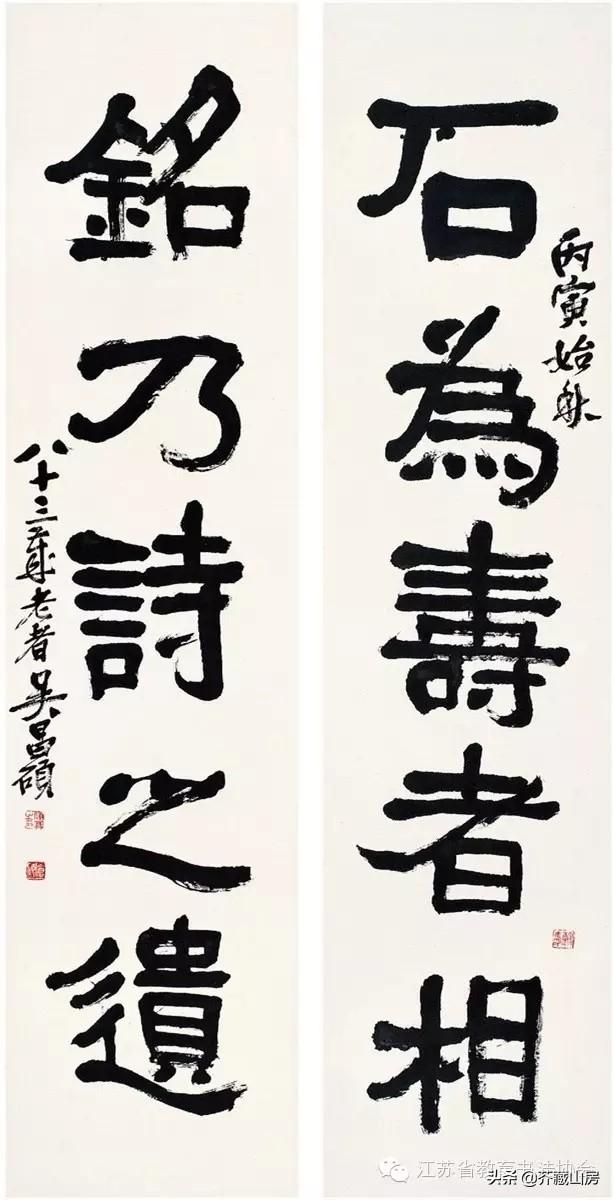 石為壽者相
丙寅始秋
銘乃詩之遺
八十三歲老者吳昌碩
江苏省教育书法协会
头条@芥藏山房